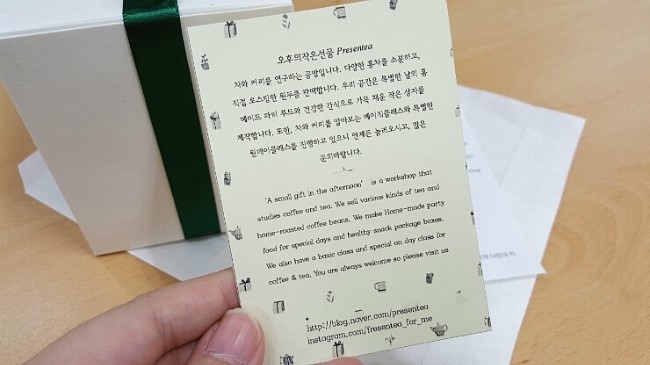 오후의작은선물 Presentea
차와 커피를 연구하는 공방입니다. 다양한 홍차를 소분하고,
직접 로스팅한 원두를 판매합니다. 우리 공간은 특별한 날의 홈
메이드 파티 푸드와 건강한 간식으로 가득 채운 작은 상자를
제작합니다. 또한, 차와 커피를 알아보는 베이직클래스와 특별한
원데이클래스를 진행하고 있으니 언제든 놀러오시고, 많은
문의바랍니다.
'A small gift in the afternoon' is a workshop that
studies coffee and tea. We sell various kinds of tea and
home-roasted coffee beans. We make Home-made party
food for special days and healthy snack package boxes.
We also have a basic class and special on day class for
coffee & tea. You are always welcome so please visit us
http://blog.naver.com/presentea
instagram.com/fresentea_for_me